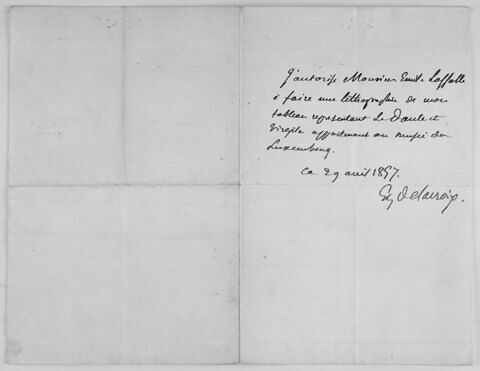 J'autorise Monsieur Emile Lassalle
à faire une lithographie de mon
tableau representant Le Dante et
Virgile appartenant au musée du
Luxembourg.
Ce 29 avril 1857.
Eug Delacroix.